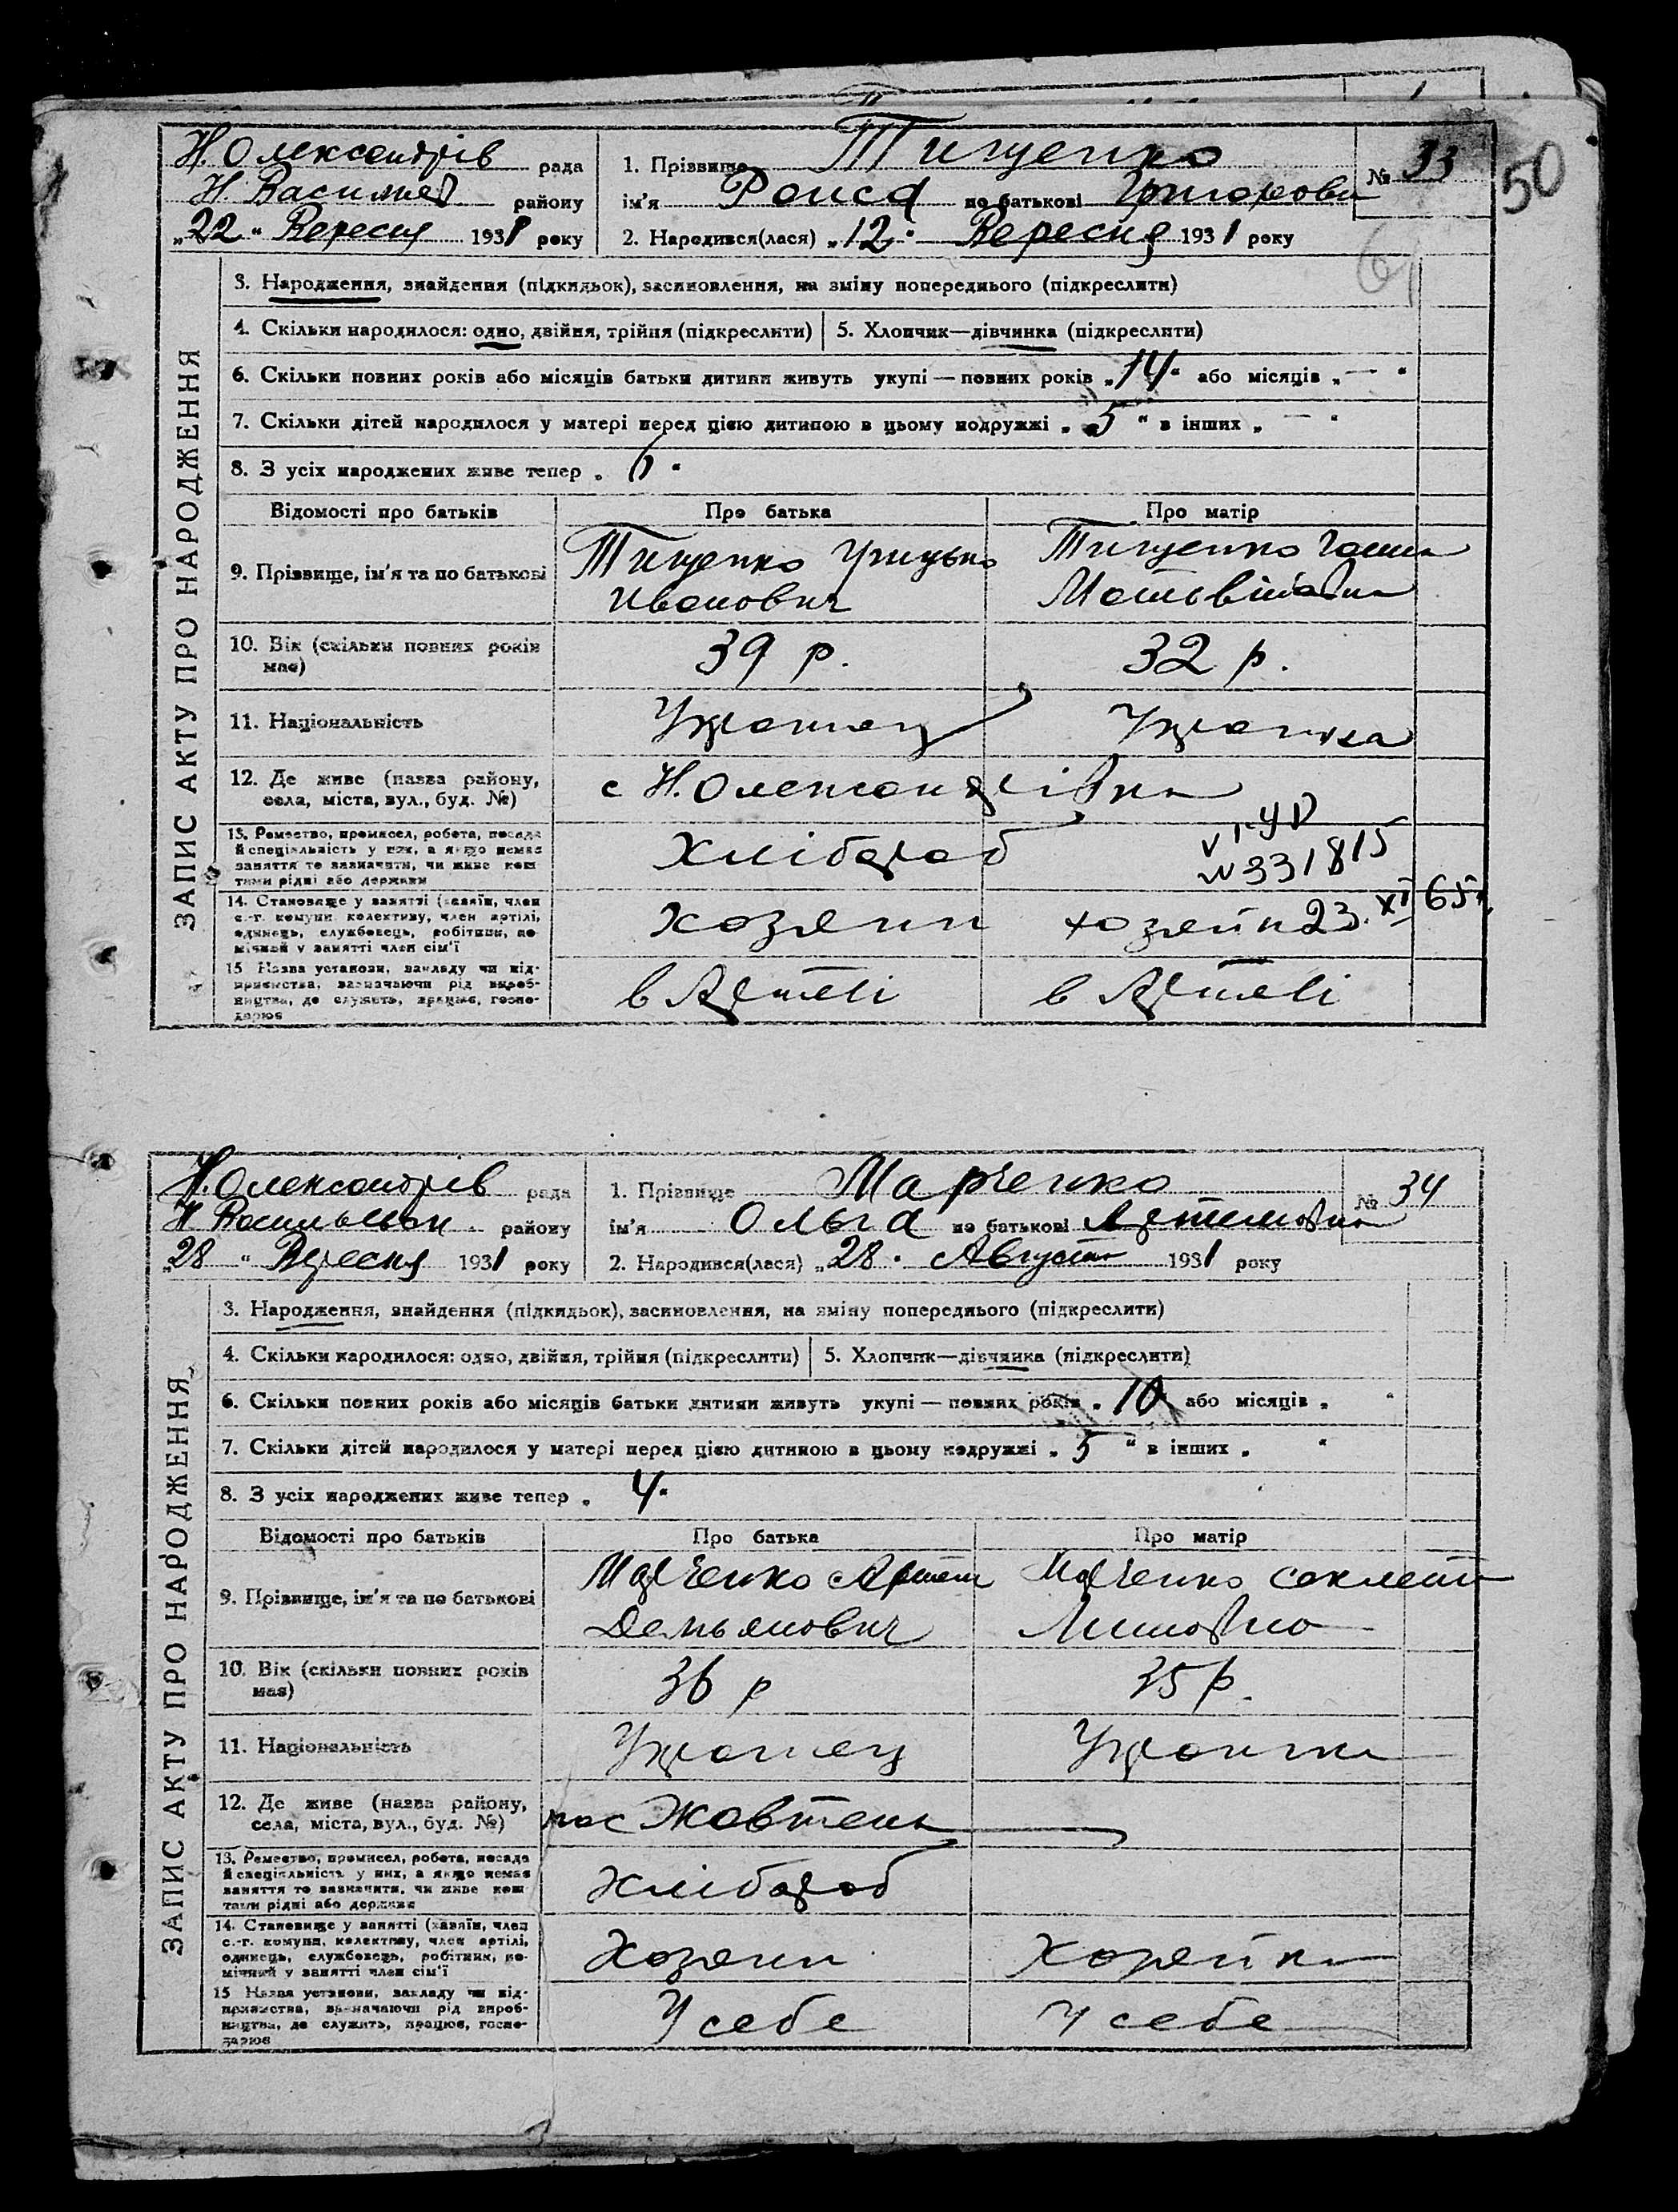 Н. Олександрів рада
Н. Василів району
„22“ Вересня 1931 року
1. Прізвище Тищенко № 33
50
ім'я Раиса по батькові Григоровн
2. Народився(лася) „12“ Вересня 1931 року
61
ЗАПИС АКТУ ПРО НАРОДЖЕННЯ
3. Народження, знайдення (підкидьок), засиновлення, на зміну попереднього (підкреслити)
4. Скільки народилося: одно, двійня, трійня (підкреслити) 5. Хлопчик—дівчинка (підкреслити)
6. Скільки повних років або місяців батьки дитини живуть укупі — повних років „14“ або місяців „—“
7. Скільки дітей народилося у матері перед цією дитиною в цьому подружжі „5“ в інших „—“
8. З усіх народжених живе тепер „6“
Відомості про батьків Про батька Про матір
9. Прізвище, ім'я та по батькові Тищенко Грицько Тищенко
Иванович Матвіївна
10. Вік (скільки повних років 39 р. 32 р.
має)
11. Національність Украинец Украинка
12. Де живе (назва району, с Н. Олександрівка
села, міста, вул., буд. №)
13. Ремество, промисел, робота, посада Хлібороб
й спеціяльність у них, а якщо немає № 331815
заняття то зазначити, чи живе кош-
тами рідні або держави
14. Становище у занятті (хазяїн, член Хозяин Хозяйк 23. XI 65г.
с.-г. комуни, колективу, член артілі,
одинець, службовець, робітник, по-
мічний у занятті член сім'ї
15 Назва установи, закладу чи під- в Артелі в Артелі
приємства, зазначаючи рід вироб-
ництва, де служить, працює, госпо-
дарює
Н. Олександрів рада
Н Васильевск району
„28“ Вересня 1931 року
1. Прізвище Марченко № 34
ім'я Ольга по батькові Артемовна
2. Народився(лася) „28“ Августа 1931 року
ЗАПИС АКТУ ПРО НАРОДЖЕННЯ
3. Народження, знайдення (підкидьок), засиновлення, на зміну попереднього (підкреслити)
4. Скільки народилося: одно, двійня, трійня (підкреслити) 5. Хлопчик—дівчинка (підкреслити)
6. Скільки повних років або місяців батьки дитини живуть укупі — повних років „10“ або місяців „ “
7. Скільки дітей народилося у матері перед цією дитиною в цьому подружжі „5“ в інших „ “
8. З усіх народжених живе тепер „4“
Відомості про батьків Про батька Про матір
9. Прізвище, ім'я та по батькові Марченко Артем Марченко
Демьянович
10. Вік (скільки повних років 36 р 35 р.
має)
11. Національність Украинец Украинка
12. Де живе (назва району, пос Жовтень
села, міста, вул., буд. №)
13. Ремество, промисел, робота, посада Хлібороб
й спеціяльність у них, а якщо немає
заняття то зазначити, чи живе кош-
тами рідні або держави
14. Становище у занятті (хазяїн, член Хозяин Хозяйка
с.-г. комуни, колективу, член артілі,
одинець, службовець, робітник, по-
мічний у занятті член сім'ї
15 Назва установи, закладу чи під- У себе У себе
приємства, зазначаючи рід вироб-
ництва, де служить, працює, госпо-
дарює